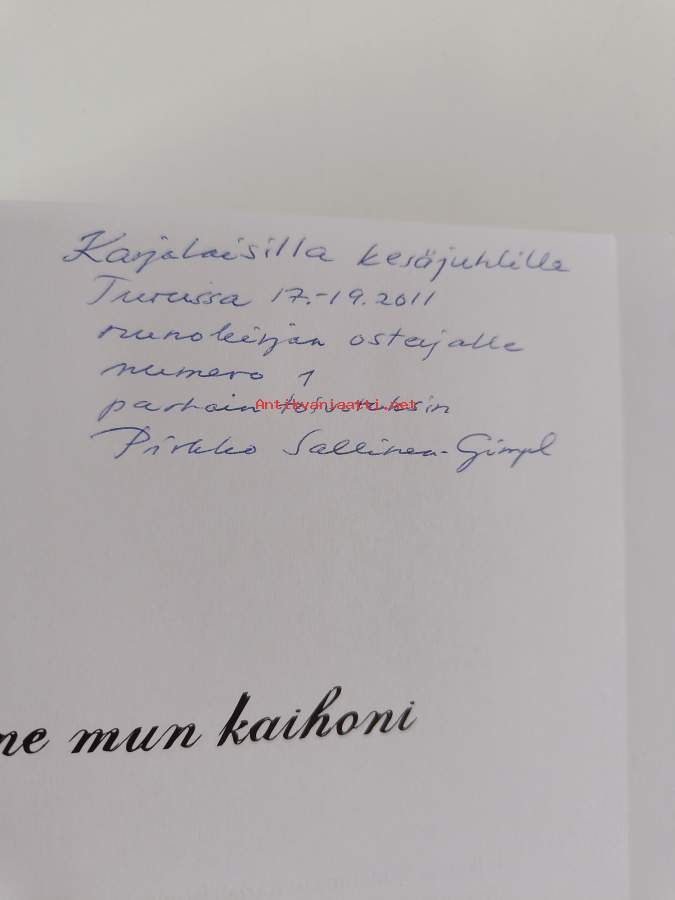 Karjalaisilla kesäjuhlilla
Turussa 17.-19.2011
runokirjan ostajalle
numero 1
parhain toivotuksin
Antikvariaatti.net
Pirkko Sallinen-Gimpl
ne mun kaihoni